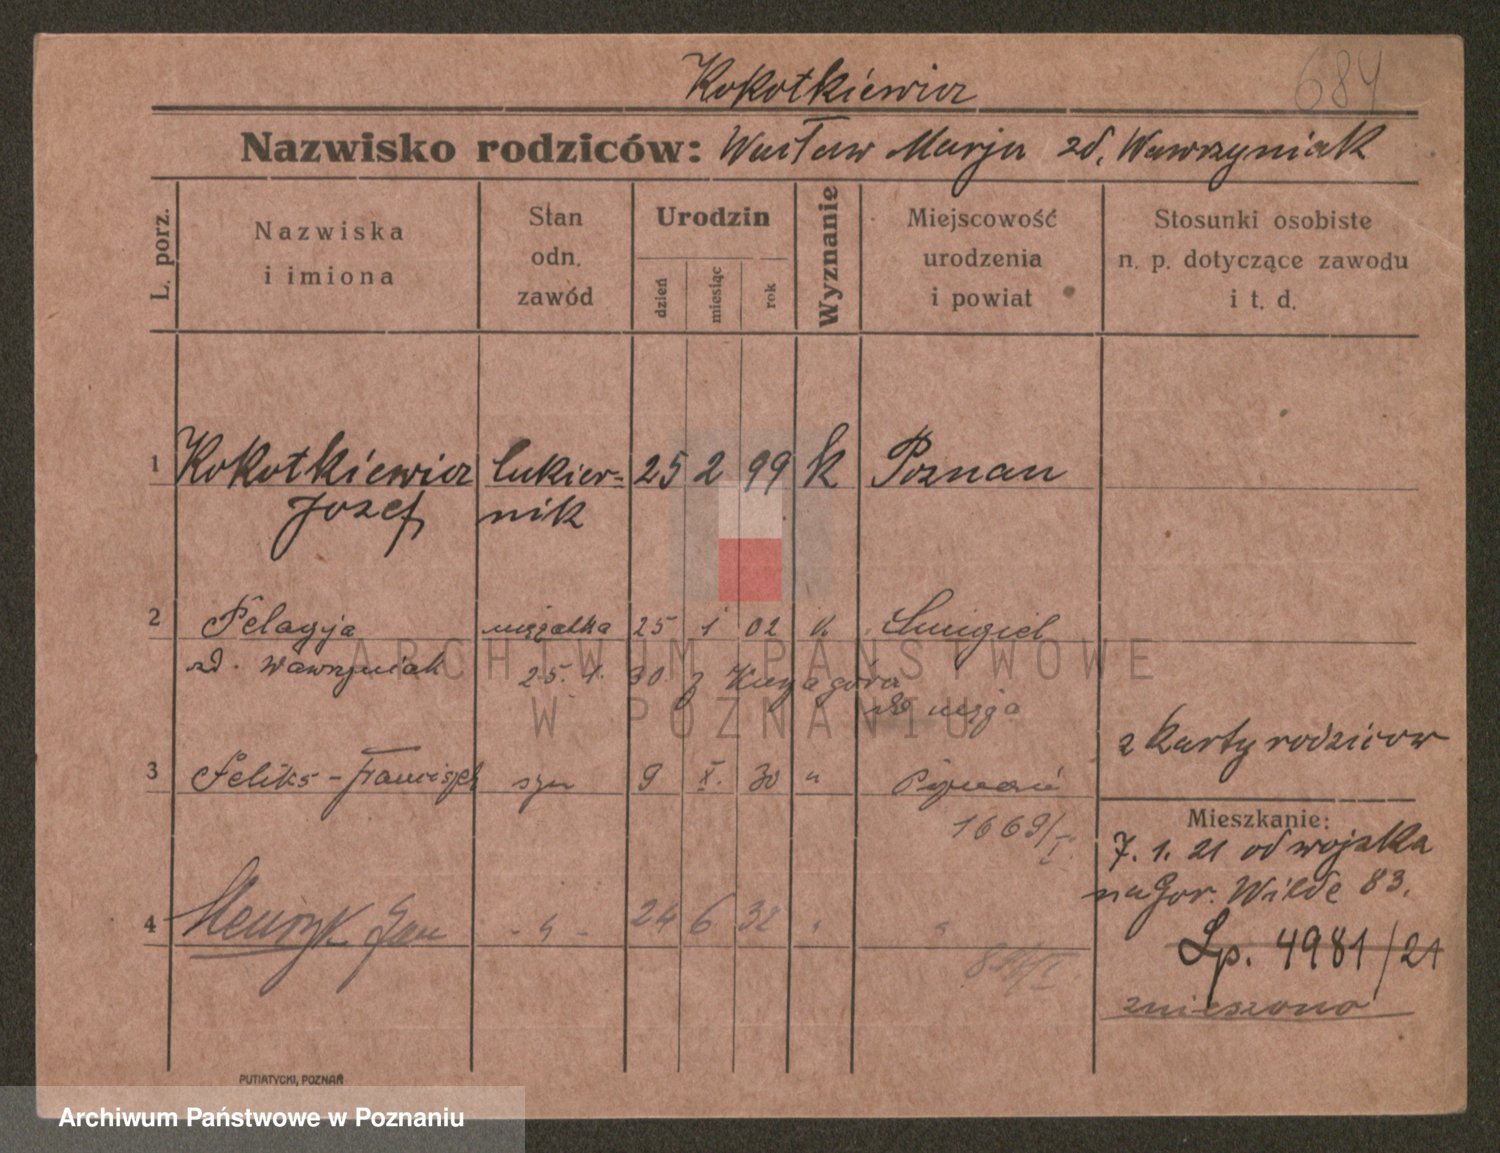 Kokotkiewicz
684
Nazwisko rodziców: Wacław Marja zd. Wawrzyniak
L. porz.
Nazwiska
i imiona
Stan
odn.
zawód
Urodzin
dzień
miesiąc
rok
Wyznanie
Miejscowość
urodzenia
i powiat
Stosunki osobiste
n. p. dotyczące zawodu
i t. d.
1 Kokotkiewicz cukier= 25 2 99 k Poznan
Jozef nik
2 Pelagja mężatka 25 1 02 k Smigiel
zd. Wawrzyniak 25. 1. 30 z
do męża
2 Karty rodzicow
3 Feliks - Franciszek syn 9 X. 30 " Poznań
1669/I.
Mieszkanie:
7. 1. 21 od wojska
na Gor. Wilde 83.
4 Henryk Jan - " - 24 6 32 " "
Lp. 4981/21
zniesziono
PUTIATYCKI, POZNAŃ
ARCHIWUM PAŃSTWOWE
W POZNANIU
Archiwum Państwowe w Poznaniu